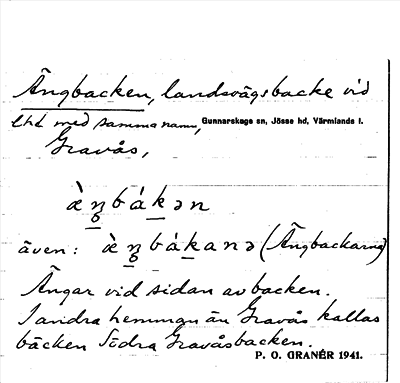 Ängbacken, landsvägsbacke vid
lhd med samma namn, Gunnarskogs sn, Jösse hd, Värmlands l.
Gravås,
ὲŋbákən
även: ὲŋbákanə (Ängbackarna)
Ängar vid sidan av backen.
I andra hemman än Gravås kallas
bäcken Södra Gravåsbacken.
P. O. GRANÉR 1941.